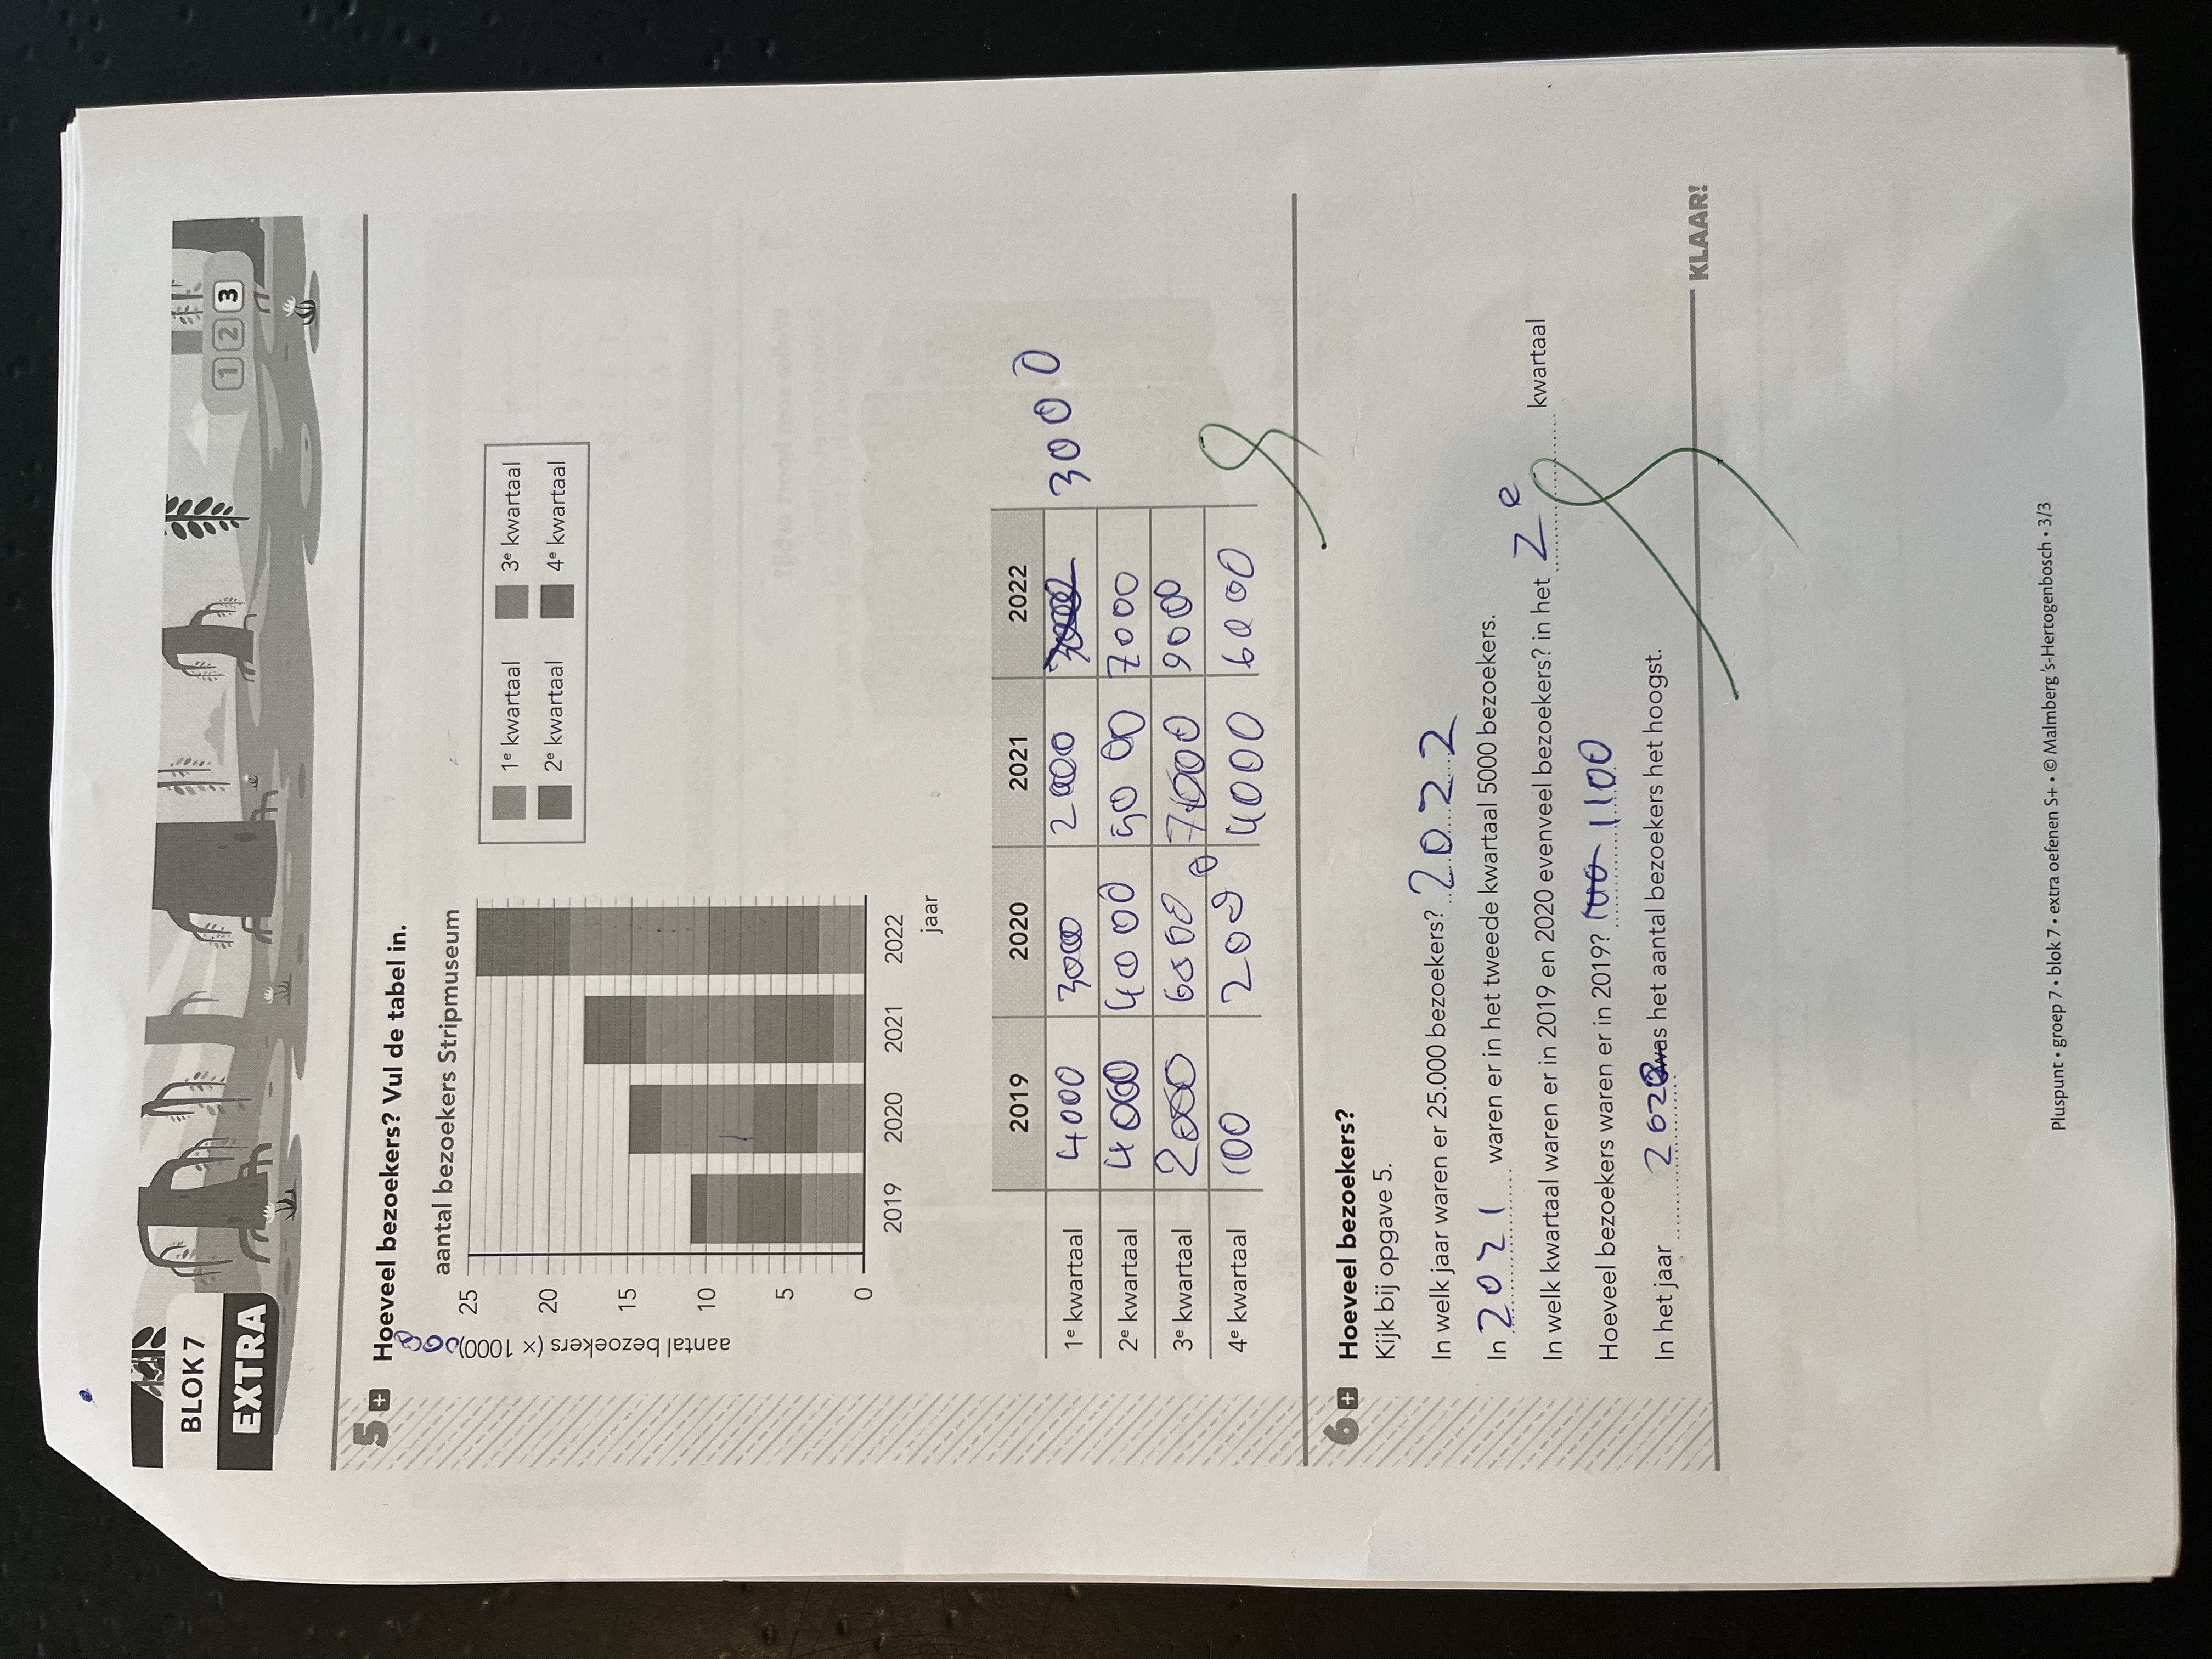 BLOK 7
EXTRA
1 2 3
5 + Hoeveel bezoekers? Vul de tabel in.
aantal bezoekers Stripmuseum
aantal bezoekers (× 1000)
25
20
15
10
5
0
2019 2020 2021 2022
jaar
1e kwartaal 3e kwartaal
2e kwartaal 4e kwartaal
2019 2020 2021 2022
1e kwartaal 4000 3000 2000 3000
2e kwartaal 4000 4000 5000 7000
3e kwartaal 2000 6000 7000 9000
4e kwartaal 100 2000 4000 6000
6 + Hoeveel bezoekers?
Kijk bij opgave 5.
In welk jaar waren er 25.000 bezoekers? 2022
In 2021 waren er in het tweede kwartaal 5000 bezoekers.
In welk kwartaal waren er in 2019 en 2020 evenveel bezoekers? in het 2e kwartaal
Hoeveel bezoekers waren er in 2019? 1100
In het jaar was het aantal bezoekers het hoogst.
KLAAR!
Pluspunt • groep 7 • blok 7 • extra oefenen S+ • © Malmberg 's-Hertogenbosch • 3/3